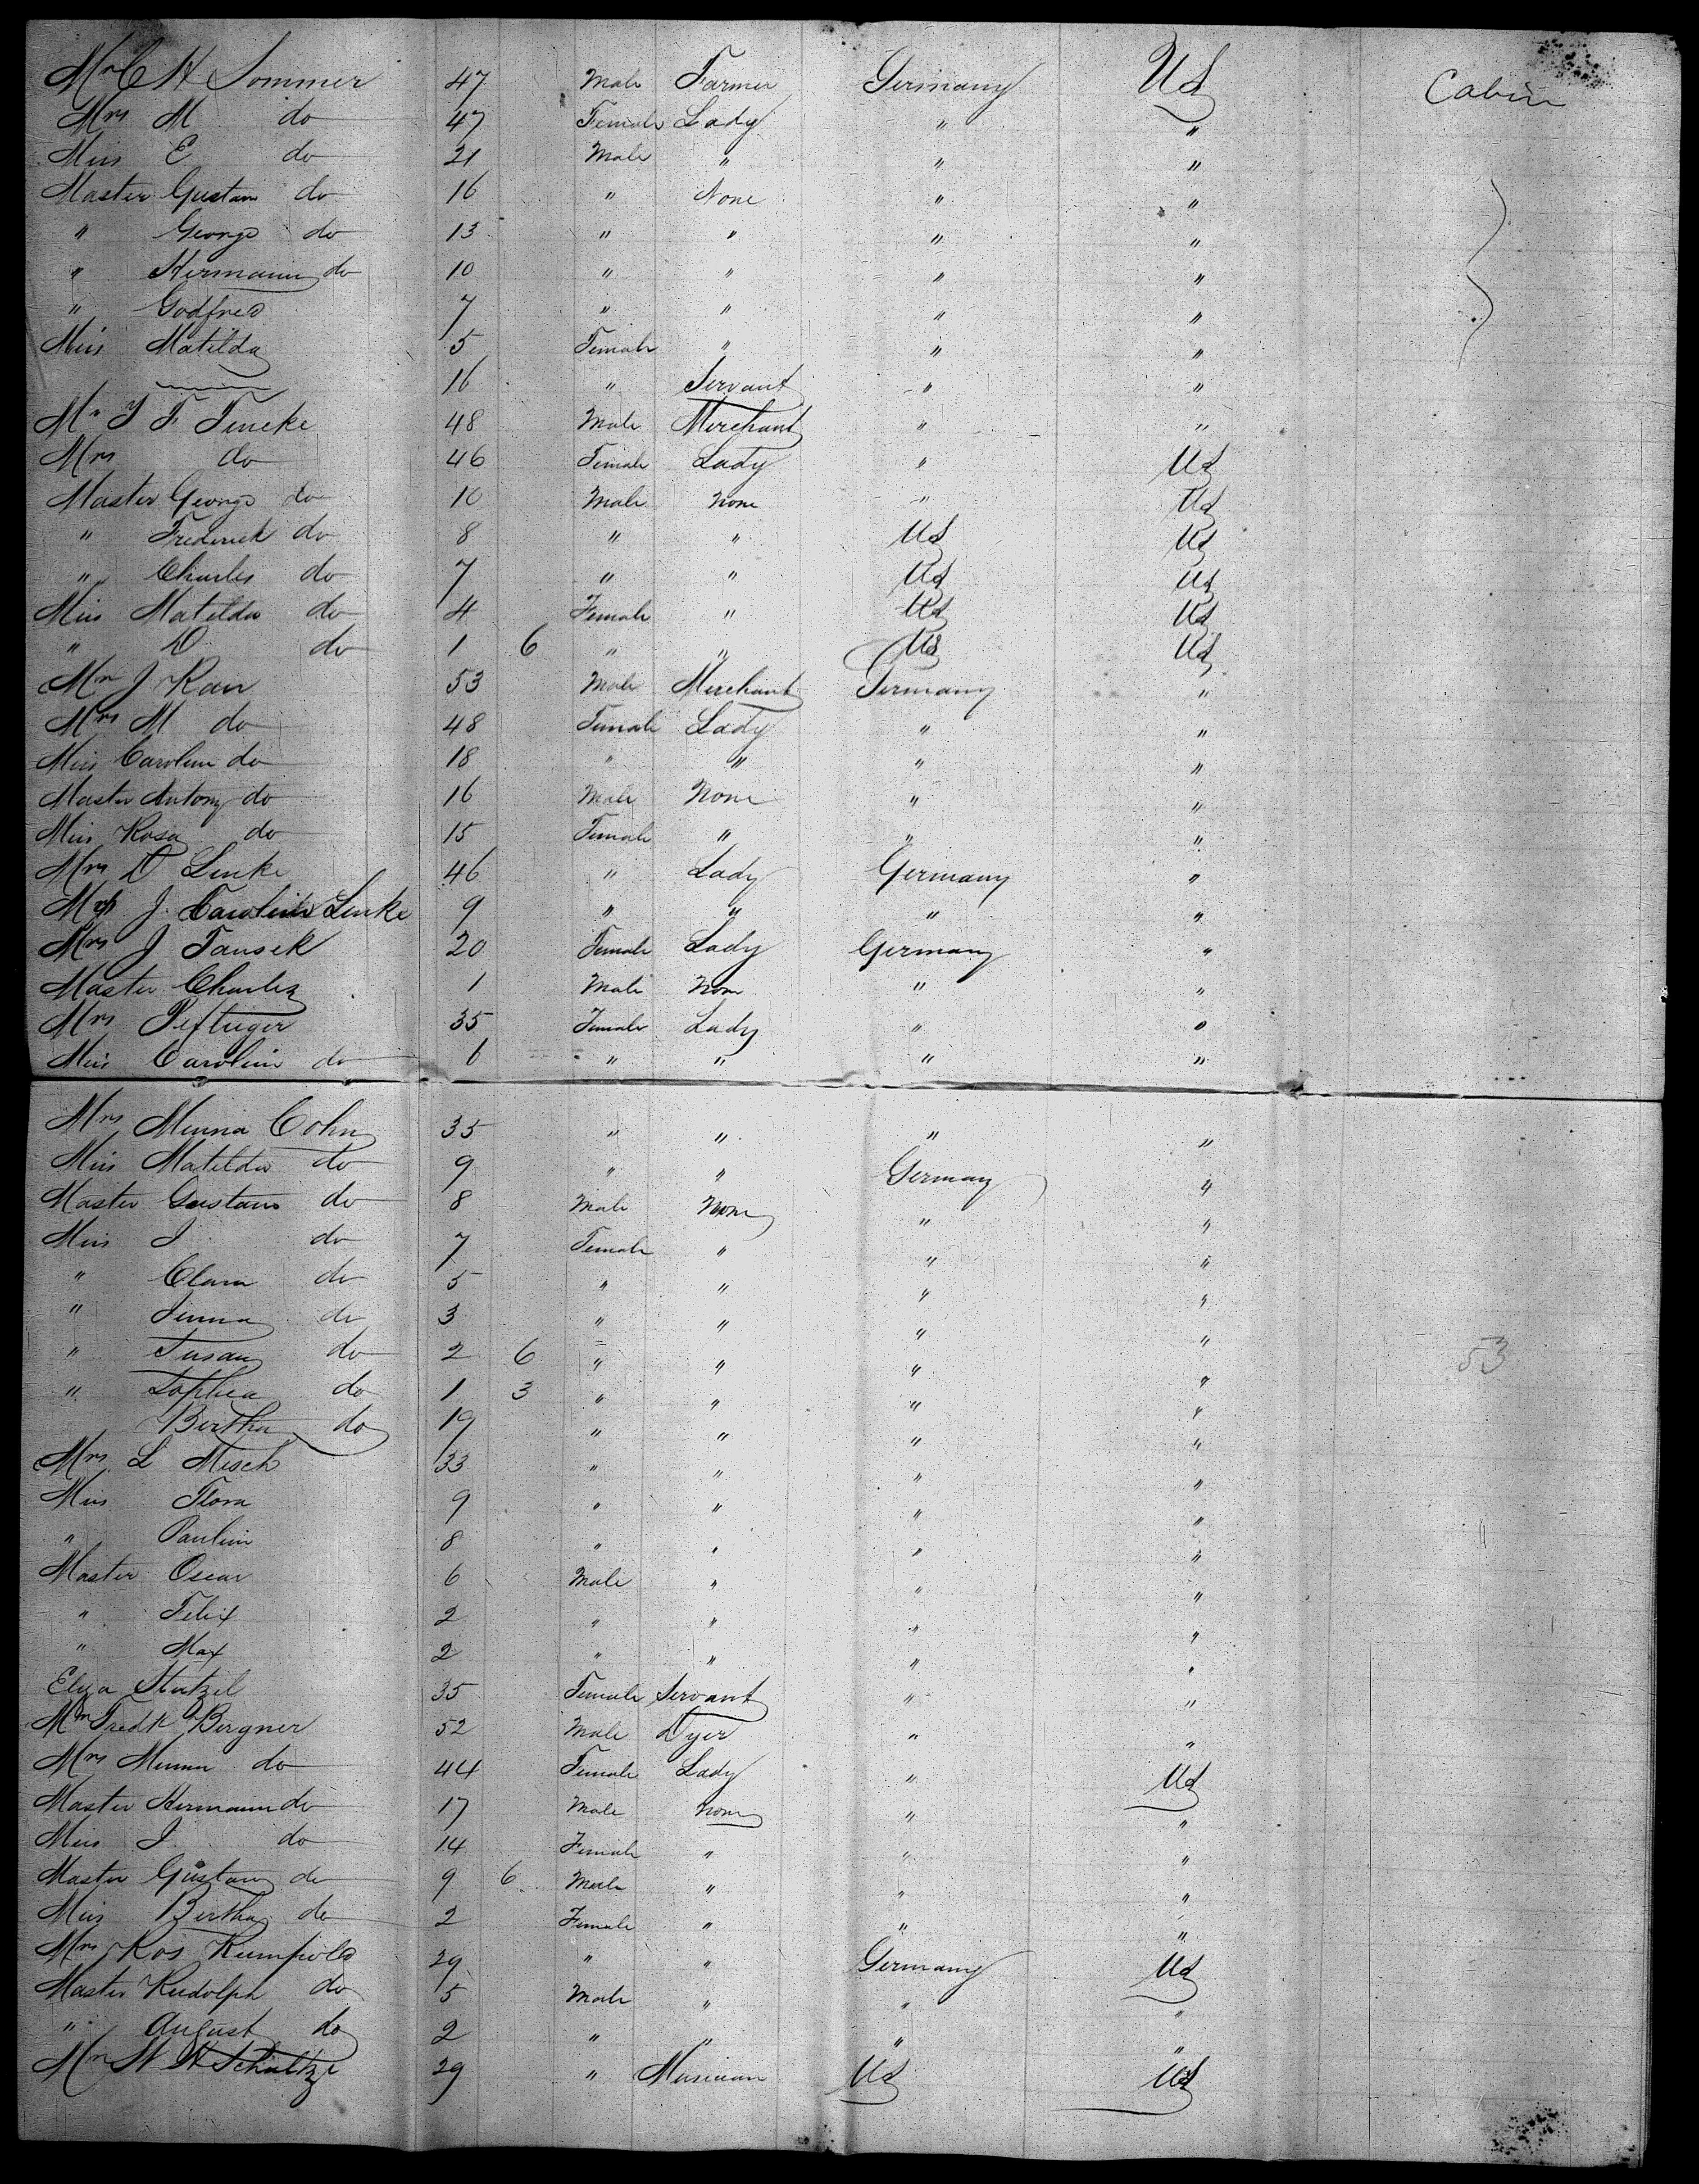 Mr C H Sommer 47 Male Farmer Germany US Cabin
Mrs M do 47 Female Lady " "
Miss E do 21 Male " " "
Master Gustav do 16 " None " "
" George do 13 " " " "
" Hermann do 10 " " " "
" Godfred 7 " " " "
Miss Matilda 5 Female " " "
16 " Servant " "
Mr F 48 Male Merchant " "
Mrs do 46 Female Lady " US
Master George do 10 Male None " US
" Frederick do 8 " " US US
" Charles do 7 " " US US
Miss Matilda do 4 Female " US US
" D do 1 6 " " US US
Mr J Rau 53 Male Merchant Germany "
Mrs M do 48 Female Lady " "
Miss Carolin do 18 " " " "
Master Antony do 16 Male None " "
Miss Rosa do 15 Female " " "
Mrs D Linke 46 " Lady Germany "
J. Carolin Linke 9 " " " "
Mrs J Tausek 20 Female Lady Germany "
Master Charles 1 Male None " "
Mrs 35 Female Lady " "
Miss Carolin do 6 " " " "
Mrs Minna Cohn 35 " " " "
Miss Matilda do 9 " " Germany "
Master Gustav do 8 Male None " "
Miss J do 7 Female " " "
" Clara do 5 " " " "
" do 3 " " " "
" Susan do 2 6 " " " "
" Sophia do 1 3 " " " "
Bertha do 19 " " " "
Mrs L Misch 33 " " " "
Miss Flora 9 " " " "
" Paulin 8 " " " "
Master Oscar 6 Male " " "
" Felix 2 " " " "
" Max 2 " " " "
Eliza Stutzel 35 Female Servant " "
Mr Fredk Bergner 52 Male Dyer " "
Mrs Minna do 44 Female Lady " US
Master Hermann do 17 Male None " "
Miss J do 14 Female " " "
Master Gustav do 9 6 Male " " "
Miss Bertha do 2 Female " " "
Mrs Ros 29 " " Germany US
Master Rudolph do 5 Male " " "
" August do 2 " " " "
Mr H Schultze 29 " Musician US US
53